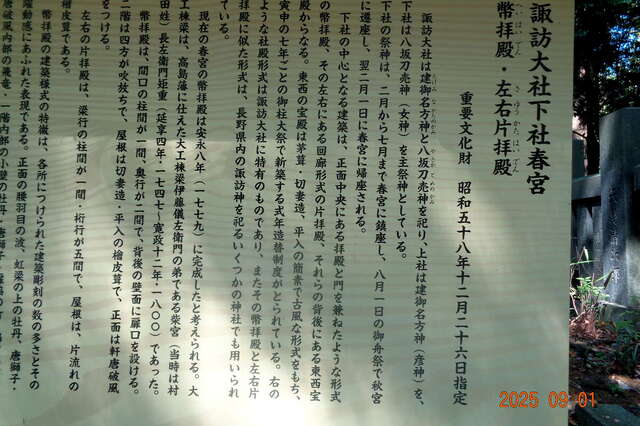 諏訪大社下社春宮
へいはいでん さゆうかたはいでん
幣拝殿・左右片拝殿
重要文化財 昭和五十八年十二月二十六日指定
諏訪大社は建御名方神と八坂刀売神を祀り、上社は建御名方神（彦神）を、
下社は八坂刀売神（女神）を主祭神としている。
下社の祭神は、二月から七月まで春宮に鎮座し、八月一日の御舟祭で秋宮
に遷座し、翌二月一日に春宮に帰座される。
下社の中心となる建築は、正面中央にある拝殿と門を兼ねたような形式
の幣拝殿、その左右にある回廊形式の片拝殿、それらの背後にある東西宝
殿からなる。東西の宝殿は茅葺・切妻造、平入の簡素で古風な形式をもち、
寅申の七年ごとの御柱大祭で新築する式年造替制度がとられている。右の
ような社殿形式は諏訪大社に特有のものであり、またその幣拝殿と左右片
拝殿に似た形式は、長野県内の諏訪神を祀るいくつかの神社でも用いられ
ている。
現在の春宮の幣拝殿は安永八年（一七七九）に完成したと考えられる。大
工棟梁は、高島藩に仕えた大工棟梁伊藤儀左衛門の弟である柴宮（当時は村
田姓）長左衛門矩重（延享四年・一七四七～寛政十二年・一八〇〇）であった。
幣拝殿は、間口の柱間が一間、奥行が二間で、背後の壁面に扉口を設ける。
二階は四方が吹放ちで、屋根は切妻造・平入の檜皮葺で、正面は軒唐破風
をつける。
左右の片拝殿は、梁行の柱間が一間・桁行が五間で、屋根は、片流れの
檜皮葺である。
幣拝殿の建築様式の特徴は、各所につけられた建築彫刻の数の多さとその
躍動感にあふれた表現である。正面の腰羽目の波、虹梁の上の牡丹、唐獅子・
破風内部の飛竜、一階内部の小壁の牡丹・唐獅子
2025 09 01